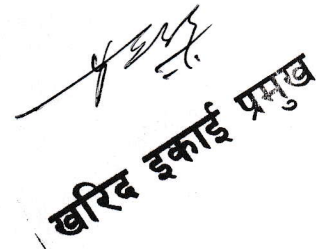 खरिद इकाई प्रमुख